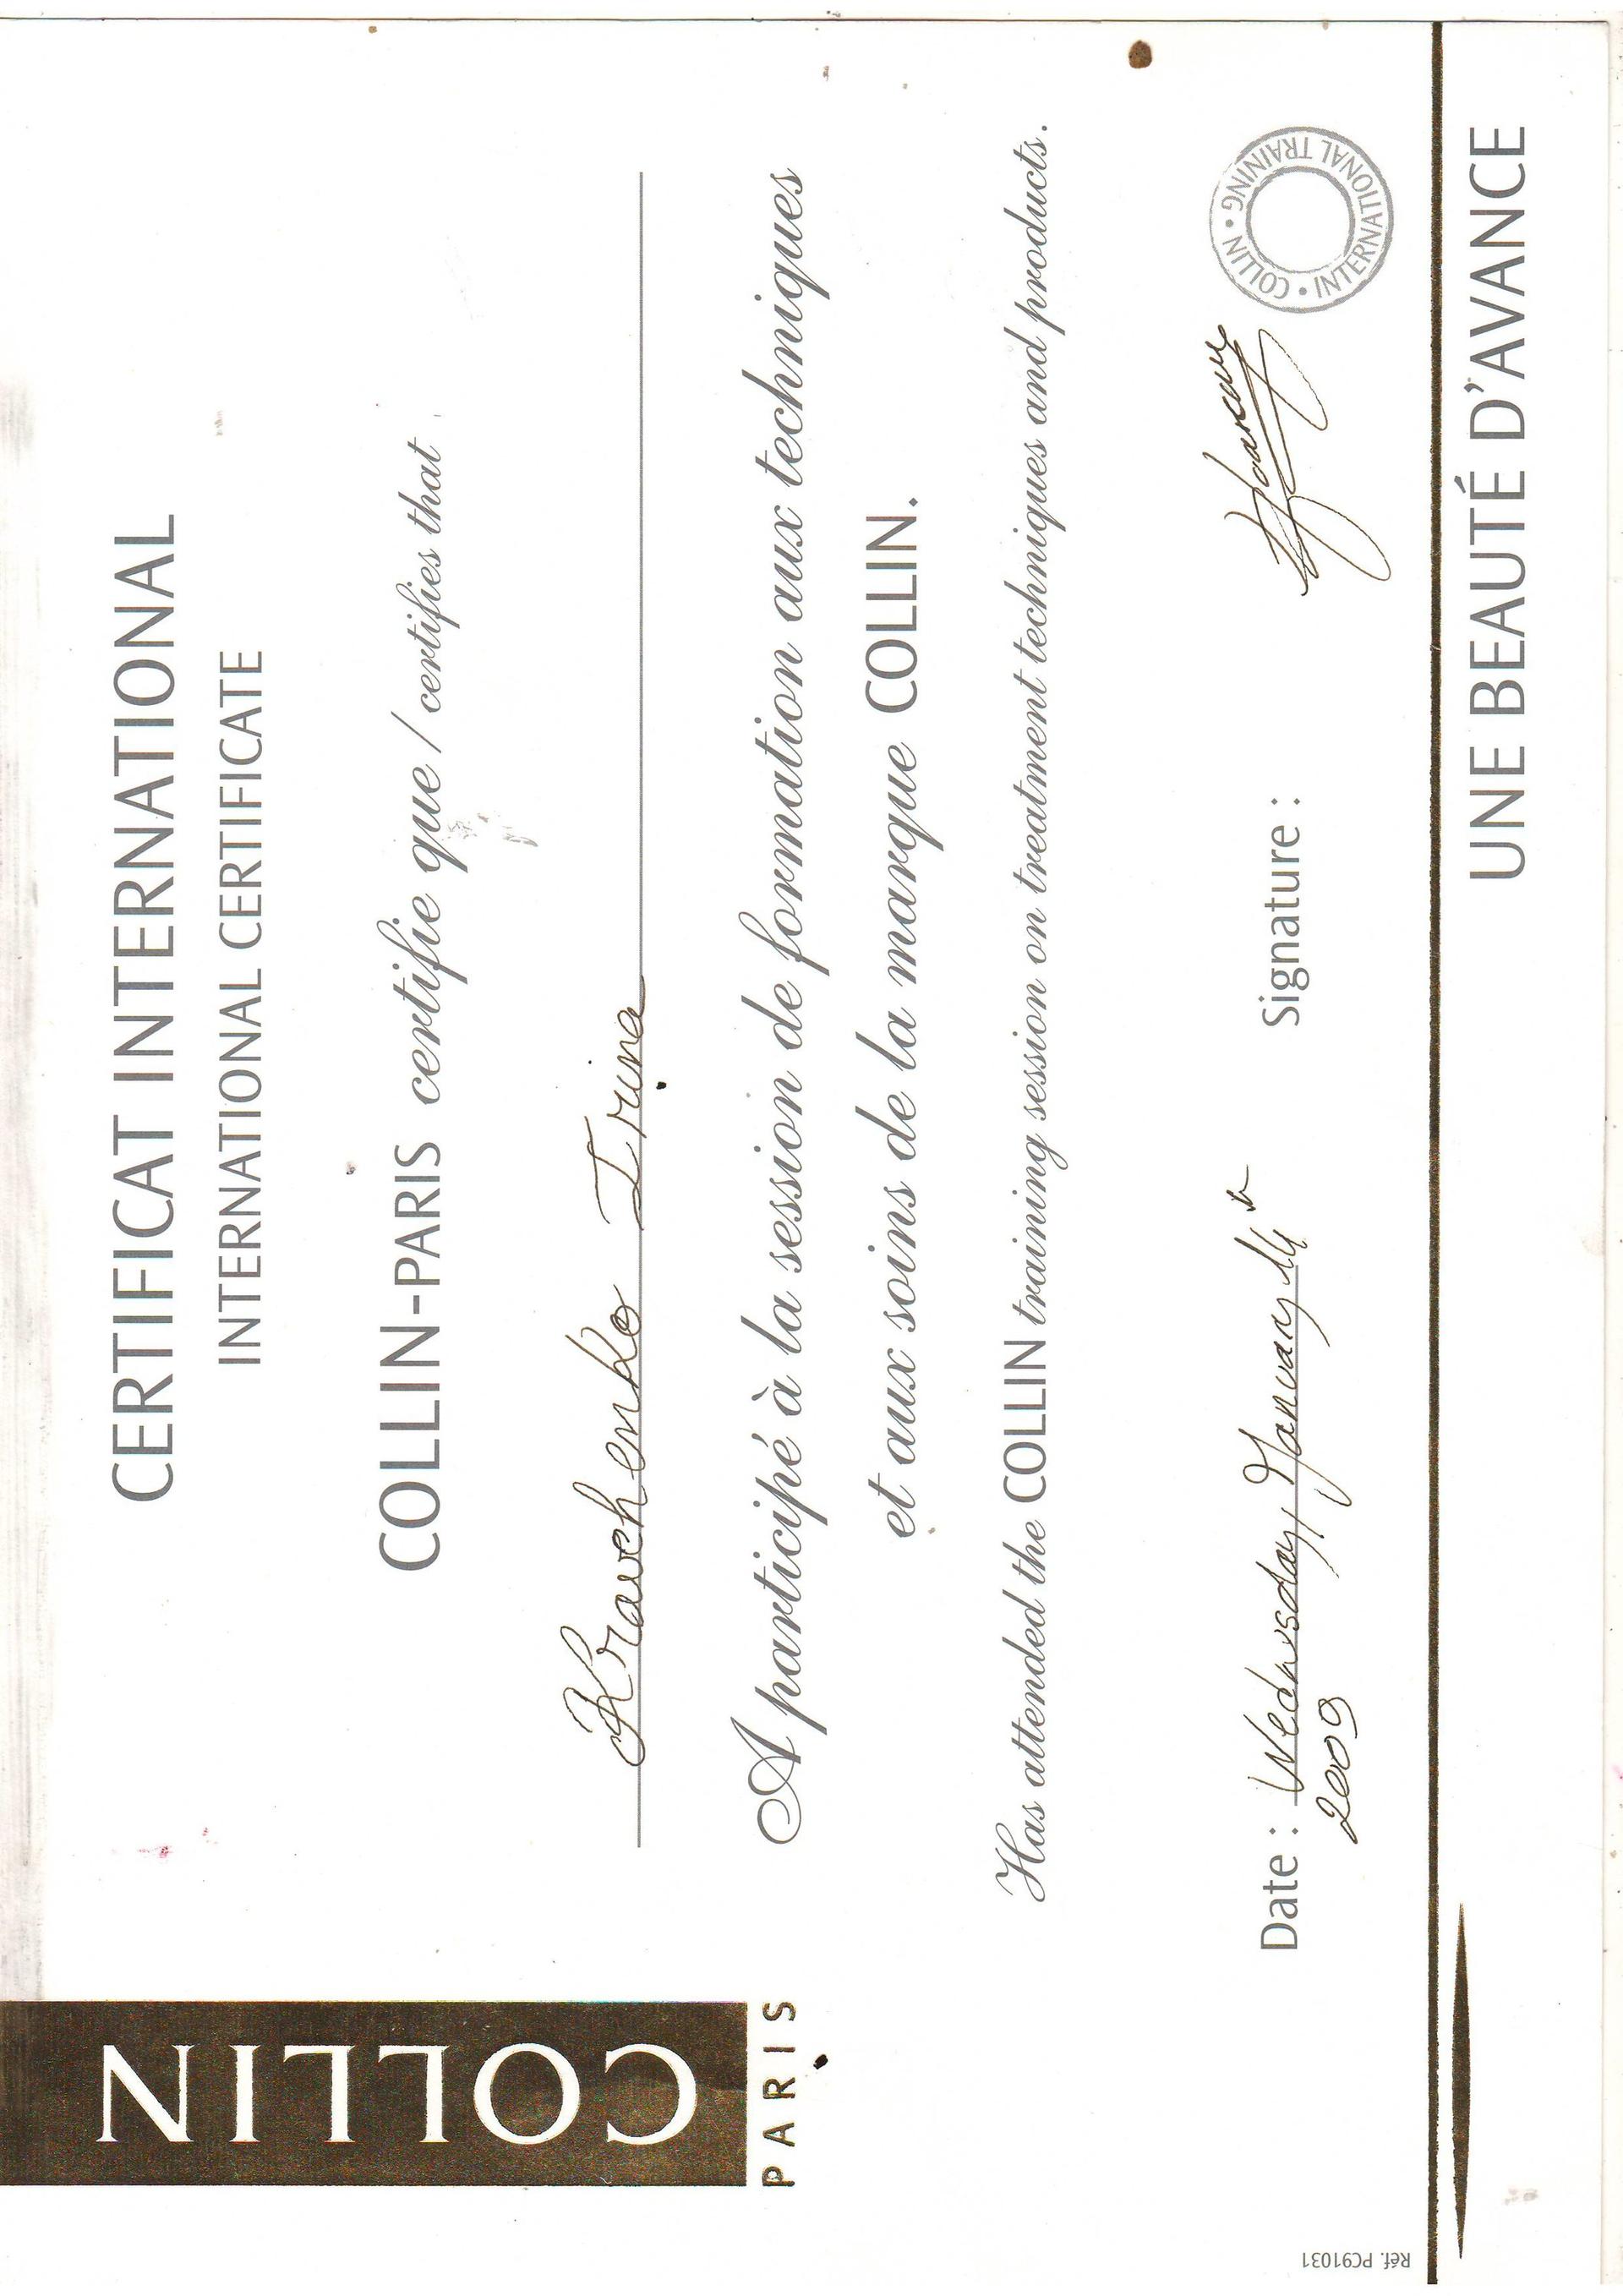 COLLIN
PARIS
CERTIFICAT INTERNATIONAL
INTERNATIONAL CERTIFICATE
COLLIN-PARIS certifie que / certifies that
Kravchenko Irina
A participé à la session de formation aux techniques
et aux soins de la marque COLLIN.
Has attended the COLLIN training session on treatment techniques and products.
Date : Wednesday, January
2009
Signature :
COLLIN • INTERNATIONAL TRAINING •
UNE BEAUTÉ D'AVANCE
Réf. PC91031